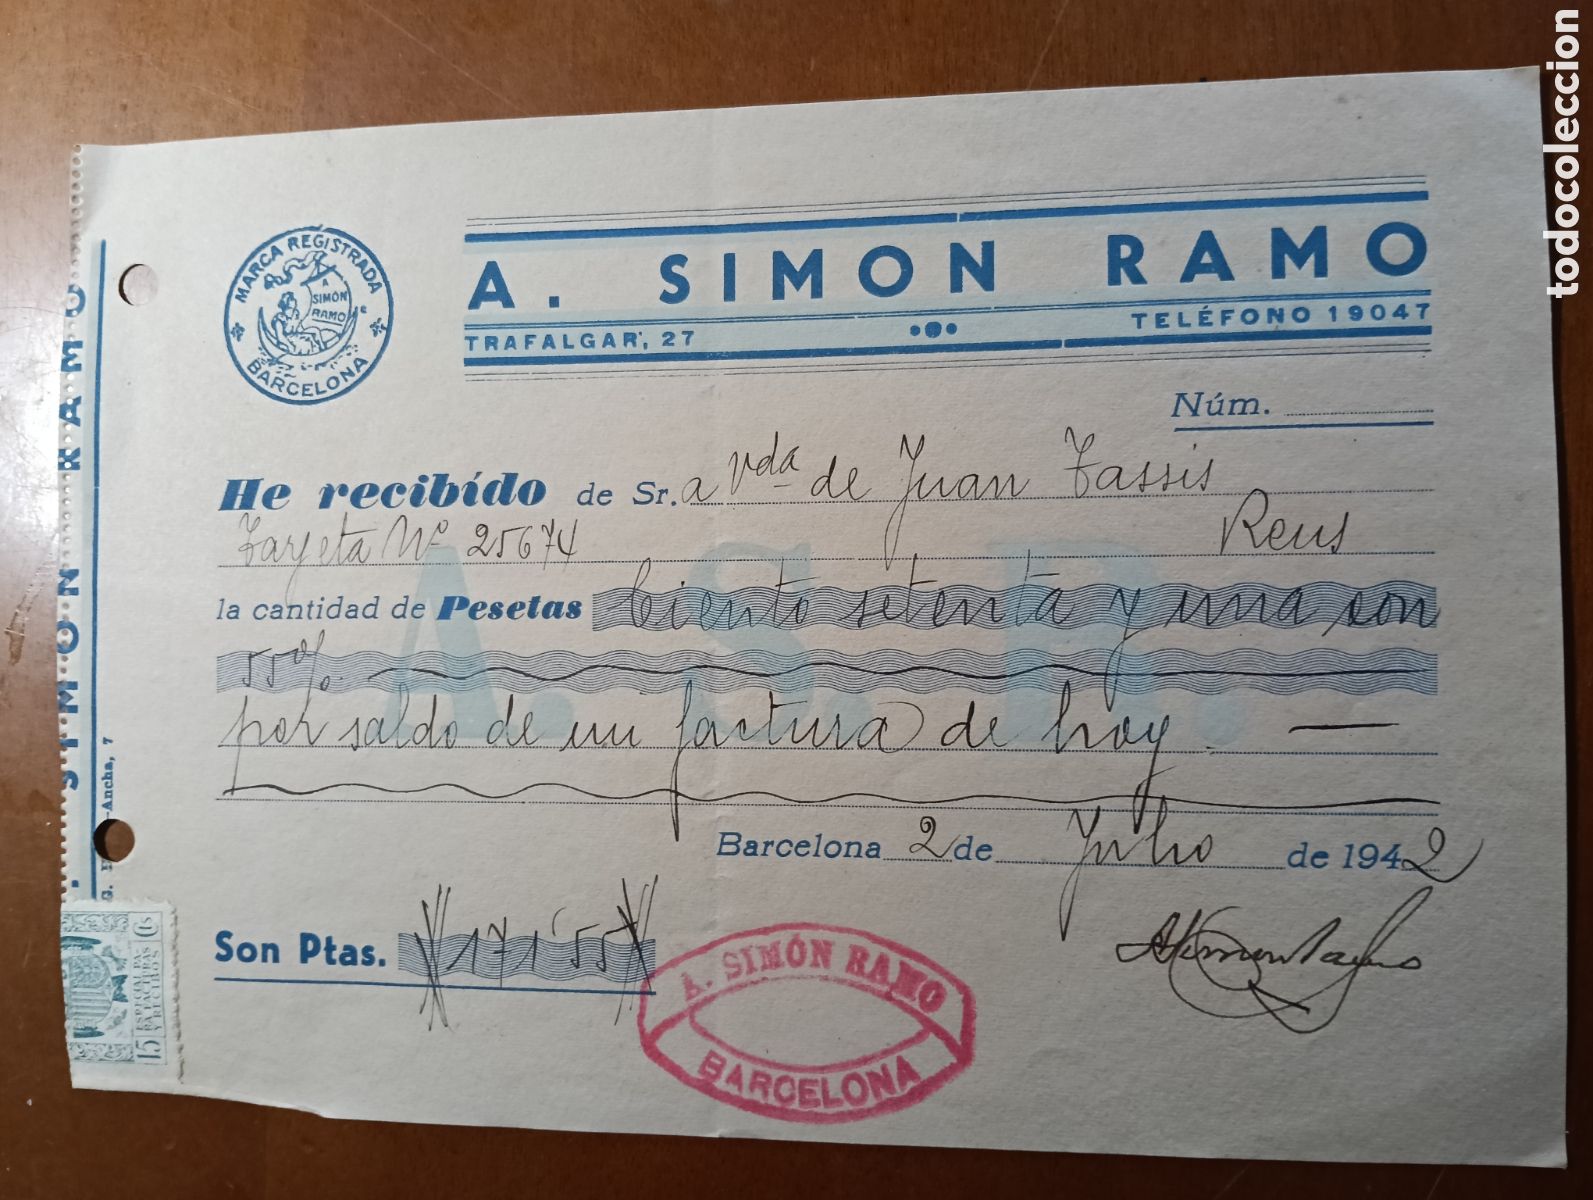 todocoleccion
MARCA REGISTRADA
A
SIMÓN
RAMO
BARCELONA
A. SIMON RAMO
TRAFALGAR, 27 TELÉFONO 19047
Núm.
He recibído de Sr.a Vda de Juan Tassis
Tarjeta Nº 25674 Reus
la cantidad de Pesetas Ciento setenta y una con
55%
por saldo de mi factura de hoy.
Barcelona 2 de Julio de 1942
Son Ptas. 171'55
A. SIMÓN RAMO
BARCELONA
A. S. R.
. SIMON RAMO
Ancha, 7
15 Cts
ESPECIAL PA-
RA FACTURAS
Y RECIBOS